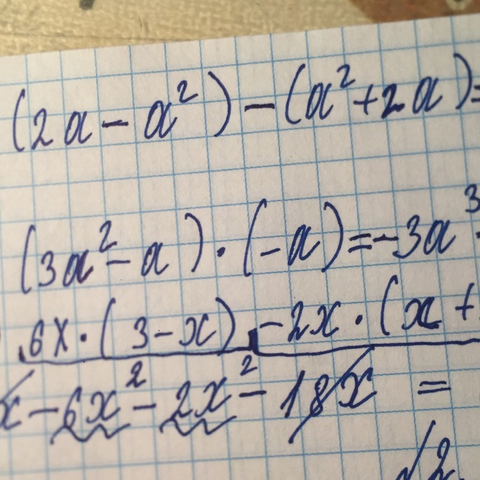 (2a - a²) - (a² + 2a) =
(3a² - a) · (-a) = -3a³
6x · (3 - x) - 2x · (x +
x - 6x² - 2x² - 18x =